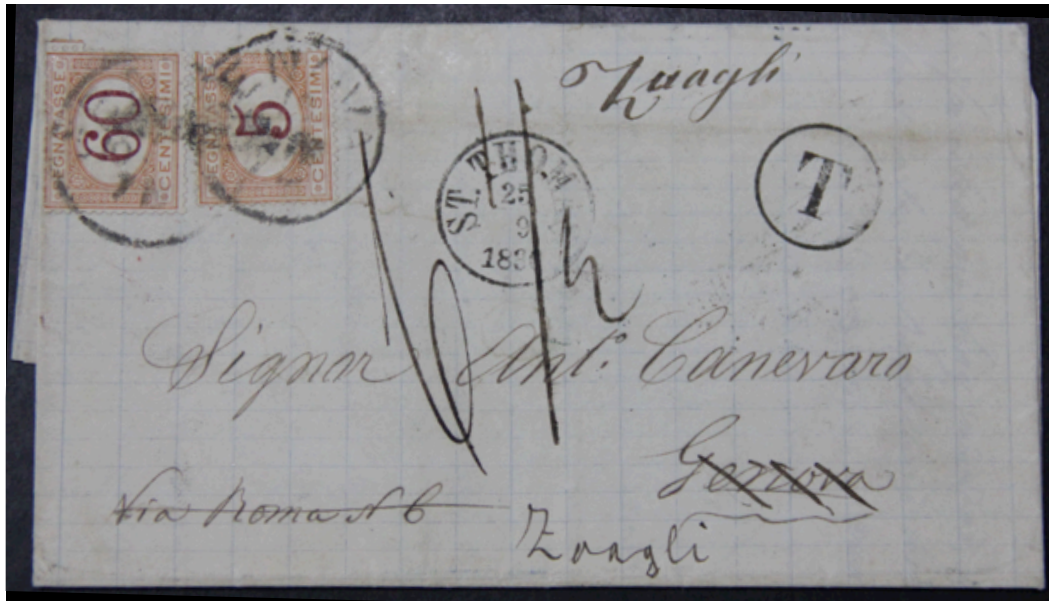 Zuagli
SEGNATASSE
60
CENTESIMI
SEGNATASSE
5
CENTESIMI
ST. THOM
25
9
T
Signor Ant.º Canevaro
Genova
Via Roma N 6
Zoagli